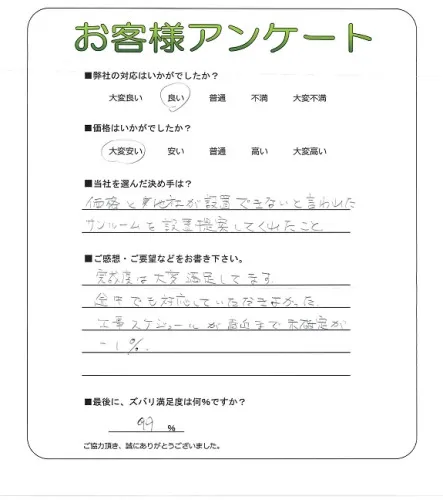 お客様アンケート
■弊社の対応はいかがでしたか?
大変良い 良い 普通 不満 大変不満
■価格はいかがでしたか?
大変安い 安い 普通 高い 大変高い
■当社を選んだ決め手は?
価格と他社が設置できないと言われた
サンルームを設置提案してくれたこと
■ご感想・ご要望などをお書き下さい。
は大変満足してます
途中でも対応していただきよかった
工事スケジュールが直近まで未確定が
-1%.
■最後に、ズバリ満足度は何%ですか?
99 %
ご協力頂き、誠にありがとうございました。